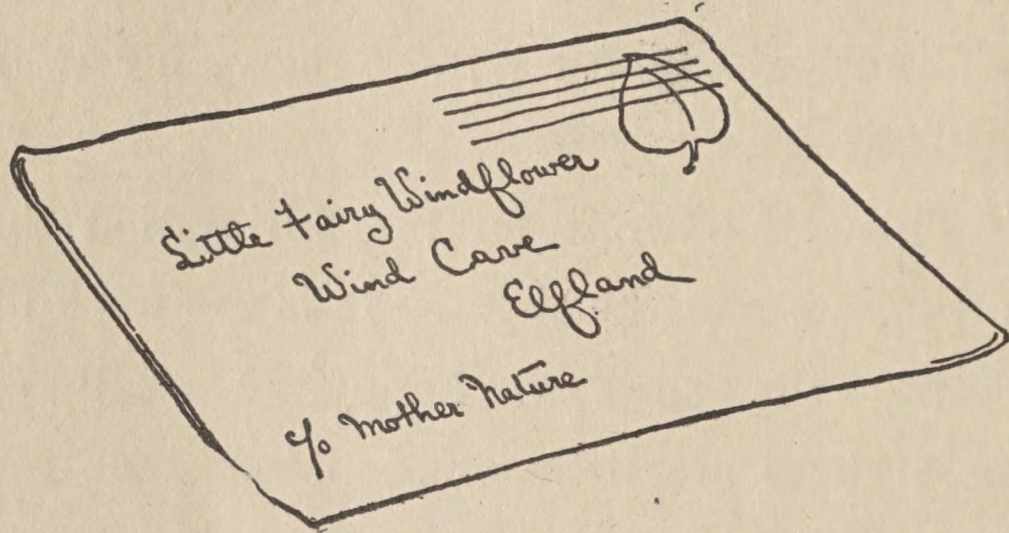 Little Fairy Windflower
Wind Cave
Elfland
c/o Mother Nature